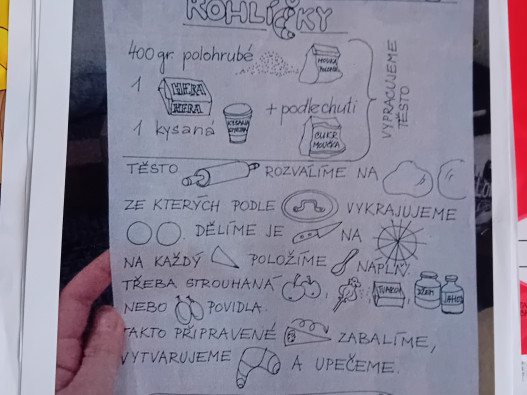 ROHLÍČKY
400 gr. polohrubé
1 HERA
HERA
1 kysaná KYSANÁ
+ podle chuti
CUKR MOUČKA
VYPRACUJEME TĚSTO
TĚSTO ROZVÁLÍME NA
ZE KTERÝCH PODLE VYKRAJUJEME
DĚLÍME JE NA
NA KAŽDÝ POLOŽÍME NÁPLŇ.
TŘEBA STROUHANÁ , , TVAROH, DŽEM
NEBO POVIDLA.
TAKTO PŘIPRAVENÉ ZABALÍME,
VYTVARUJEME A UPEČEME.